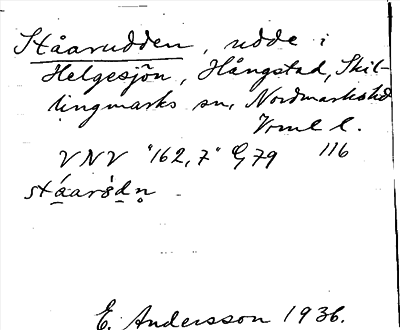 Ståarudden, udde i
Helgesjön, Hångstad, Skil-
lingmarks sn, Nordmarks hd
Vrml l.
VNV "162,7" G79 116
stáarò̀dn̥
E. Andersson 1936.